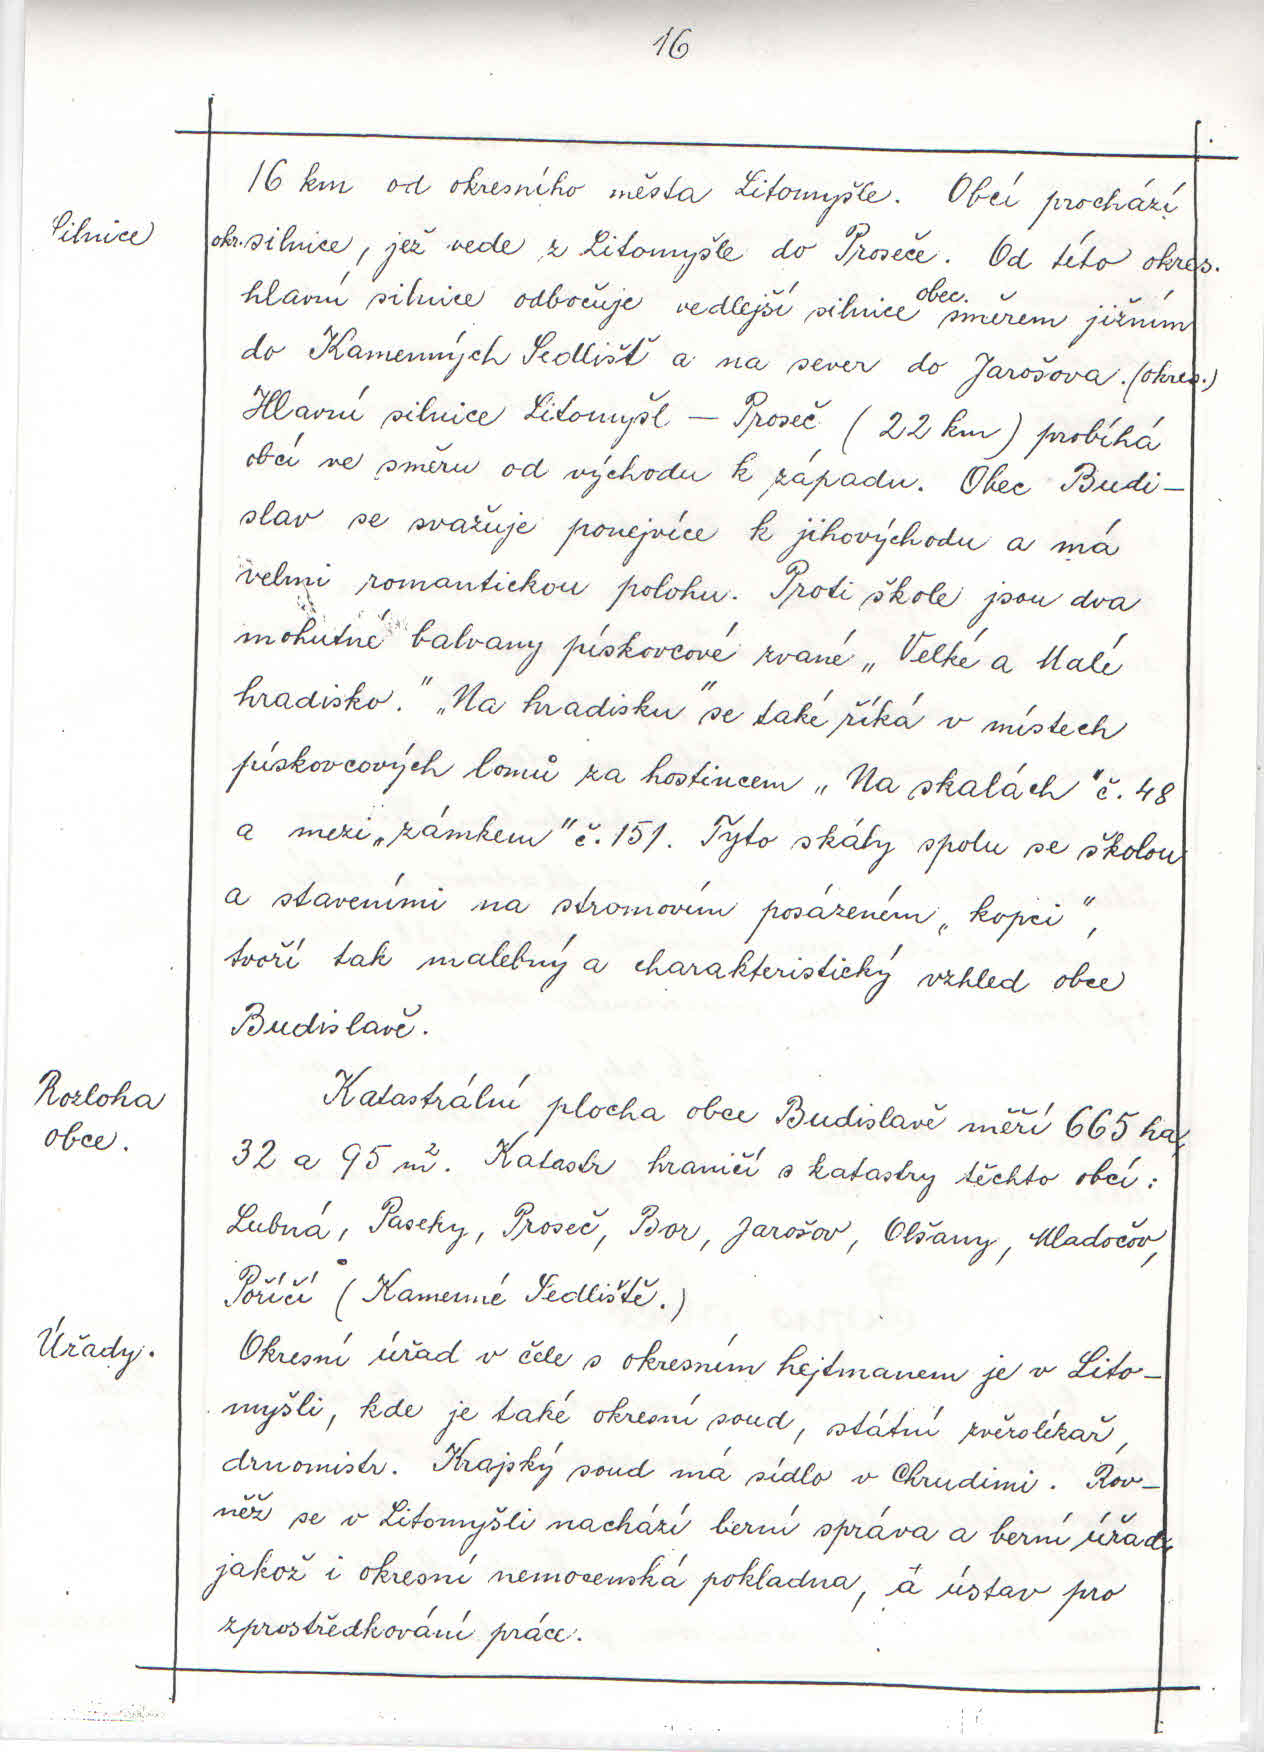 16
16 km od okresního města Litomyšle. Obcí prochází
Silnice
okr. silnice, jež vede z Litomyšle do Proseče. Od této okres.
hlavní silnice odbočuje vedlejší silnice obec. směrem jižním
do Kamenných Sedlišť a na sever do Jarošova. (okres.)
Hlavní silnice Litomyšl — Proseč (22 km) probíhá
obcí ve směru od východu k západu. Obec Budi-
slav se svažuje ponejvíce k jihovýchodu a má
velmi romantickou polohu. Proti škole jsou dva
mohutné balvany pískovcové zvané „Velké a Malé
hradisko." „Na hradisku" se také říká v místech
pískovcových lomů za hostincem „Na skalách" č. 48
a mezi „zámkem" č. 151. Tyto skály spolu se školou
a staveními na stromovím posázeném „kopci",
tvoří tak malebný a charakteristický vzhled obce
Budislavě.
Rozloha
obce.
Katastrální plocha obce Budislavě měří 665 ha,
32 a 95 m². Katastr hraničí s katastry těchto obcí:
Lubná, Paseky, Proseč, Bor, Jarošov, Olšany, Mladočov,
Poříčí (Kamenné Sedliště.)
Úřady.
Okresní úřad v čele s okresním hejtmanem je v Lito-
myšli, kde je také okresní soud, státní zvěrolékař,
drnomistr. Krajský soud má sídlo v Chrudimi. Rov-
něž se v Litomyšli nachází berní správa a berní úřad,
jakož i okresní nemocenská pokladna, a ústav pro
zprostředkování práce.